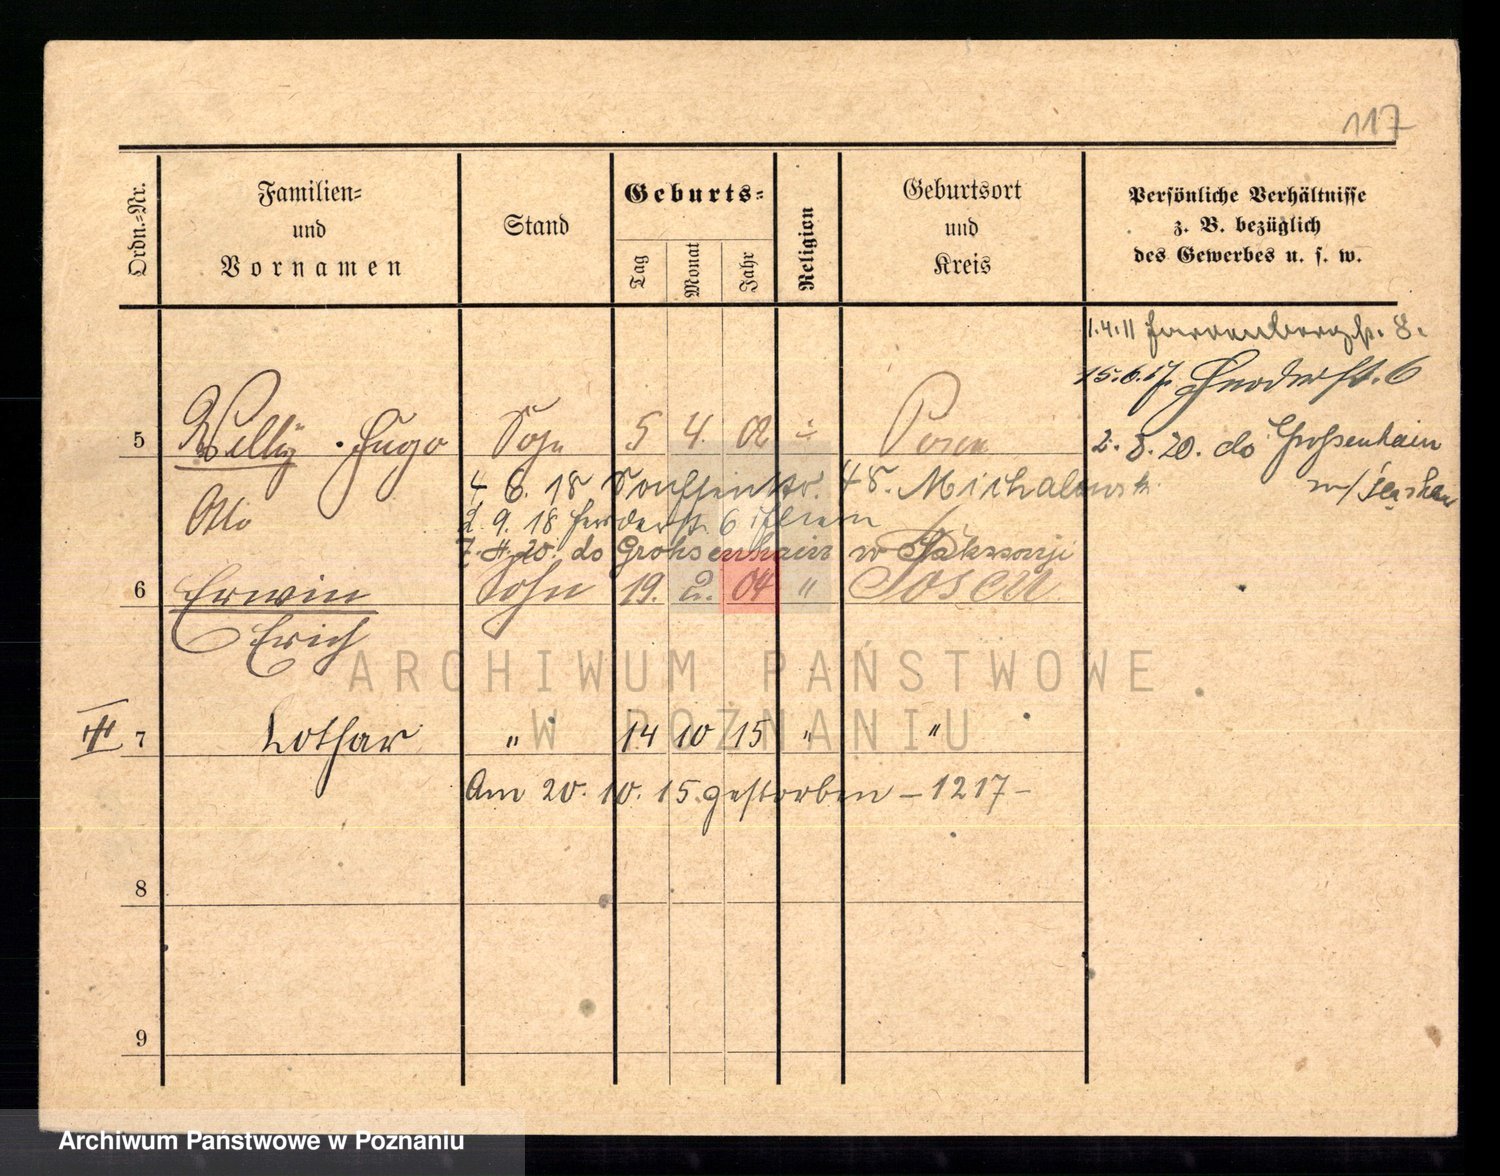 117
Ordn.-Nr.
Familien-
und
Vornamen
Stand
Geburts-
Tag
Monat
Jahr
Religion
Geburtsort
und
Kreis
Persönliche Verhältnisse
z. B. bezüglich
des Gewerbes u. s. w.
1.4.11 8.
15.6.17. 6
5 Willy Hugo Sohn 5 4. 02 Posen
2. 8. 20. do Großenhain
w/
Otto
4 6. 18 48. Michalowsk
2. 9. 18 Herderst. 6
7. 4. 20. do Grohsenhain w Saksonji
6 Erwin Sohn 19. 2. 04 " Posen
Erich
ARCHIWUM PAŃSTWOWE
W POZNANIU
7 Lothar " 14 10 15 " "
Am 20. 10. 15 gestorben – 1217 –
8
9
Archiwum Państwowe w Poznaniu